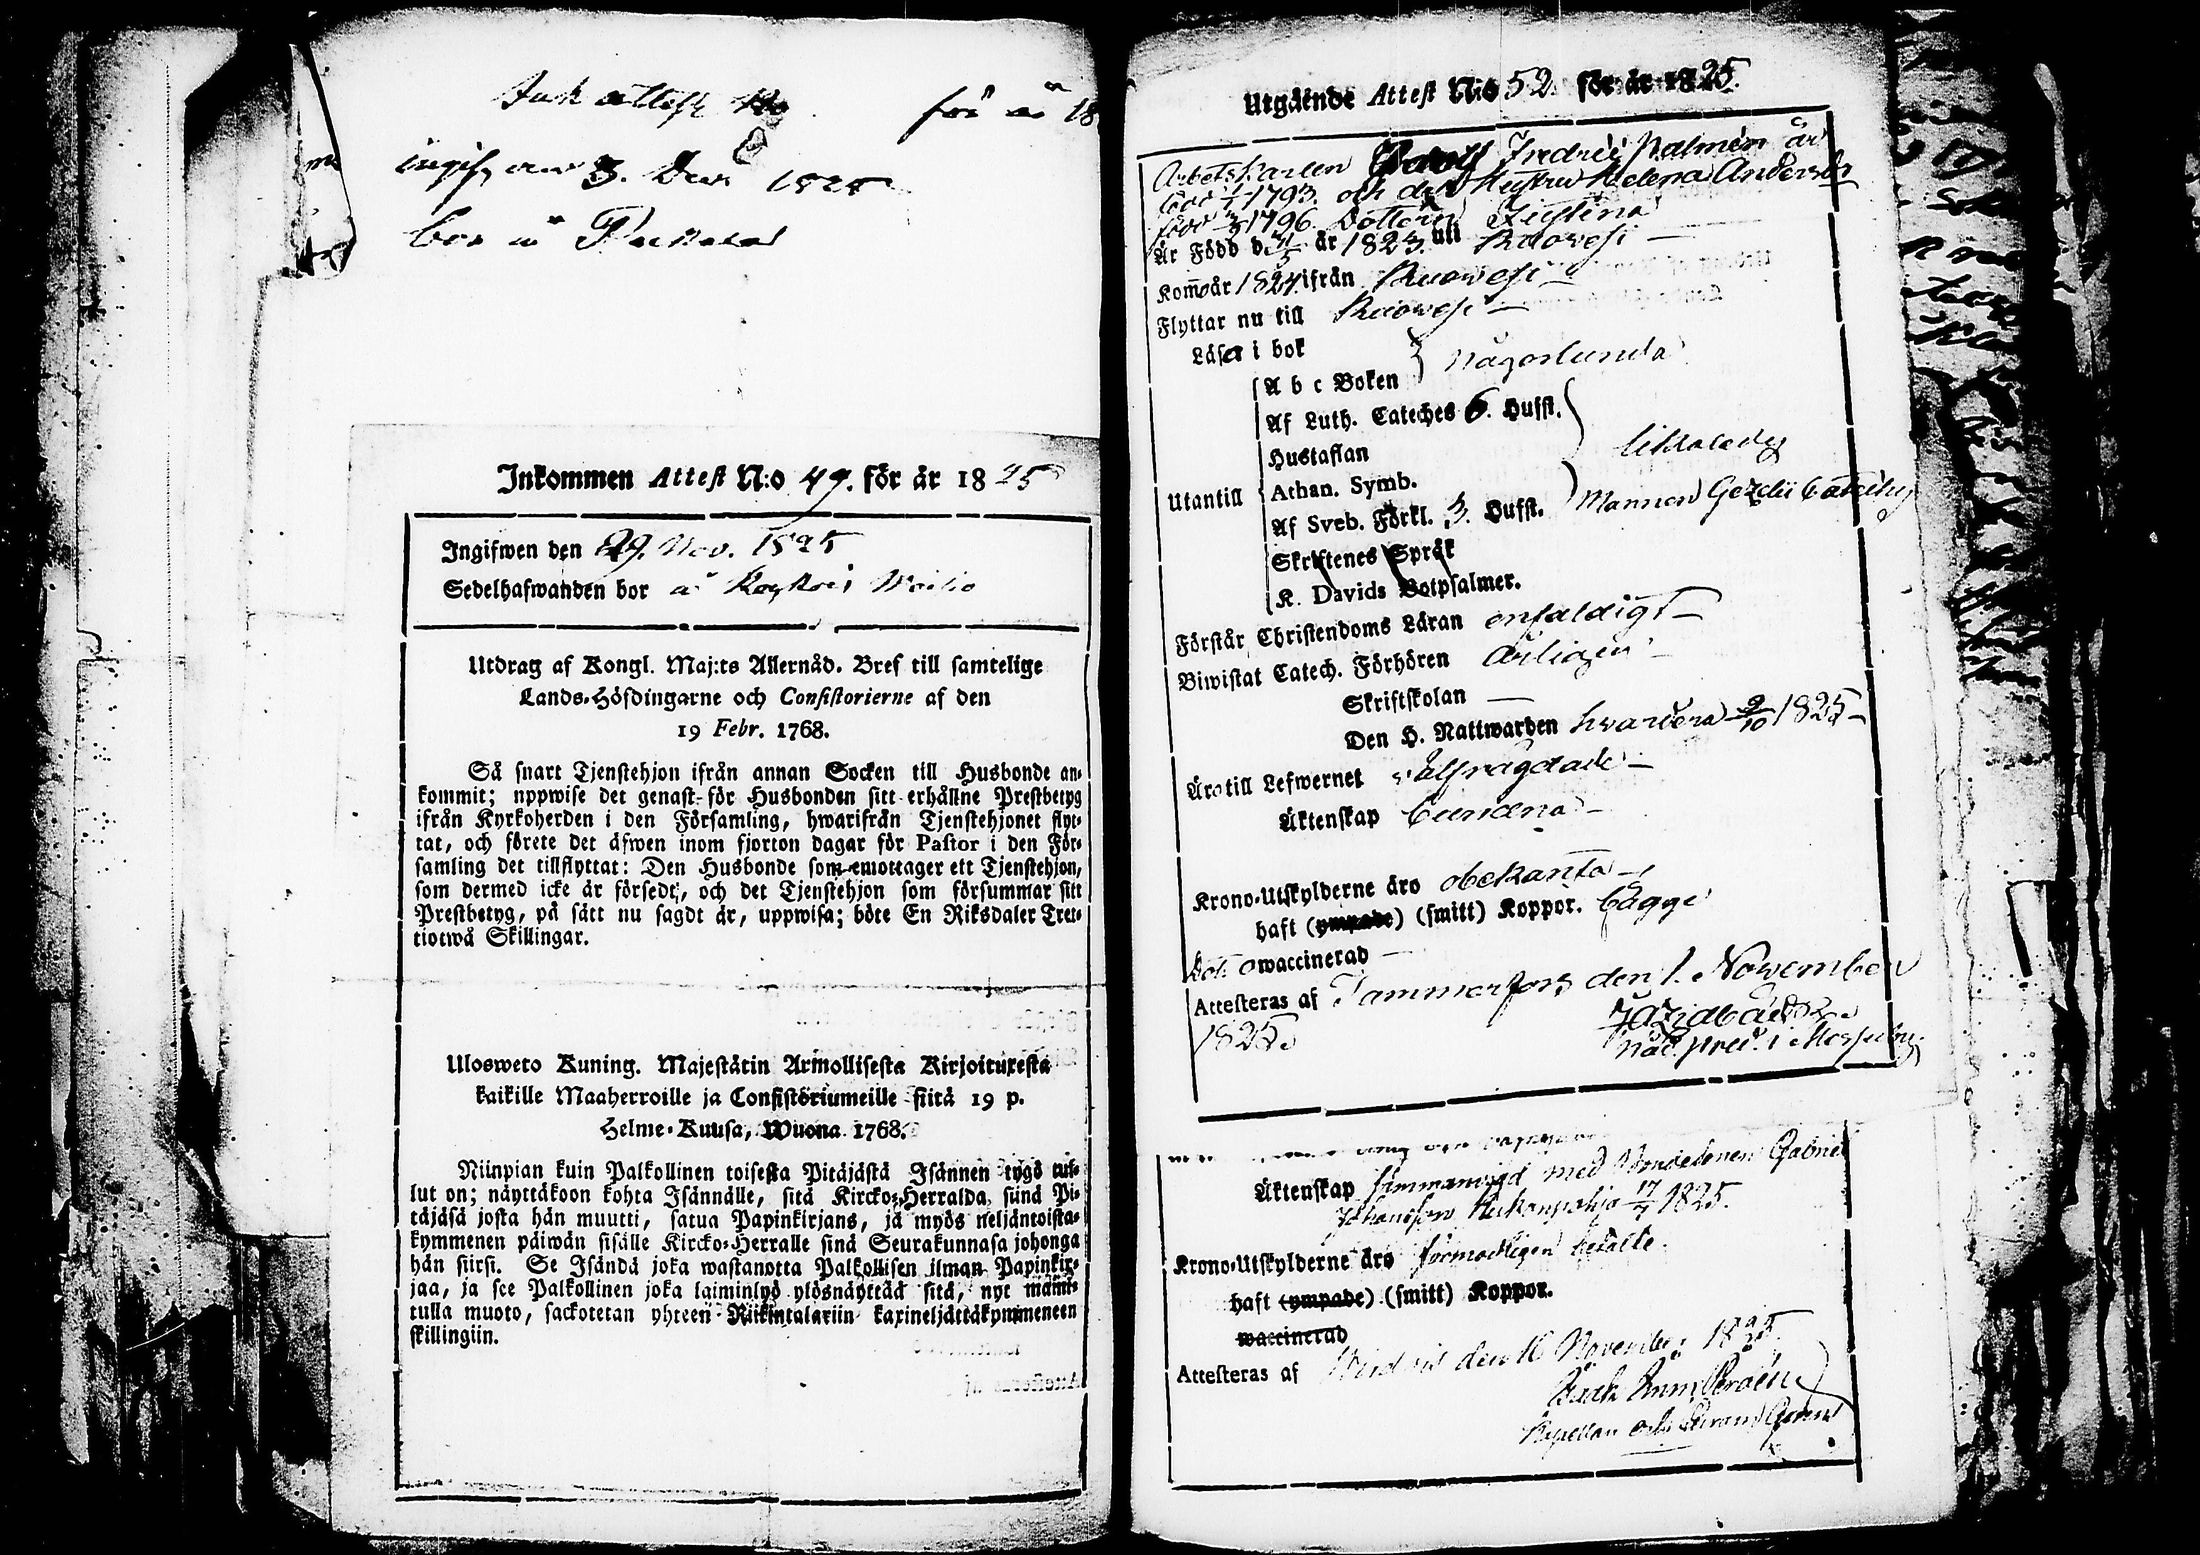 Ink attest No för år 18
ingifv. den 3. Dec 1825
bor å
Inkommen Attest N:o 49. för år 1825
Ingifwen den 29. Nov. 1825
Sedelhafwanden bor å
Utdrag af Kongl. Maj:ts Allernåd. Bref till samtelige
Lands-Höfdingarne och Consistorierne af den
19 Febr. 1768.
Så snart Tjenstehjon ifrån annan Socken till Husbonde an-
kommit; uppwise det genast för Husbonden sitt erhållne Prestbetyg
ifrån Kyrkoherden i den Församling, hwarifrån Tjenstehjonet flyt-
tat, och förete det äfwen inom fjorton dagar för Pastor i den För-
samling det tillflyttat: Den Husbonde som emottager ett Tjenstehjon,
som dermed icke är försedt, och det Tjenstehjon som försummar sitt
Prestbetyg, på sätt nu sagdt är, uppwisa; böte En Riksdaler Tret-
tiotwå Skillingar.
Ulosweto Kuning. Majestätin Armollisesta Kirjoituxesta
kaikille Maaherroille ja Consistöriumeille siitä 19 p.
Helme-Kuusa, Wuona 1768.
Niinpian kuin Palkollinen toisesta Pitäjästä Isännen tygö tul-
lut on; näyttäkoon kohta Isännälle, sitä Kircko-Herralda, siinä Pi-
täjäsä josta hän muutti, satua Papinkirjans, ja myös neljäntoista-
kymmenen päiwän sisälle Kircko-Herralle siinä Seurakunnasa johonga
hän siirsi. Se Isändä joka wastanotta Palkollisen ilman Papinkir-
jaa, ja see Palkollinen joka laiminlyö ylösnäyttää sitä, nyt maini-
tulla muoto, sackotetan yhteen Riikintalariin kaxineljättäkymmeneen
skillingiin.
Utgående Attest N:o 52. för år 1825.
Arbetskarlen Adolf Fredric Palmén är
född 1793. och des Hustru Helena Andersdr
född 1796. Dottern Justina
Är Född d. är 1823. uti Ruowesi
Kom år 1824. ifrån Ruowesi
Flyttar nu till Ruowesi
Läsa i bok
A b c Boken någorlunda
Af Luth. Cateches 6. Hufst.
Hustaflan likaledes
Utantill Athan. Symb.
Af Sveb. Förkl. 3. Hufst. Mannen Gezelii Cateches
Skriftenes Språk
K. Davids Botpsalmer.
Förstår Christendoms Läran enfaldigt
Biwistat Catech. Förhören årligen
Skriftskolan
Den H. Nattwarden hwardera 9/10 1825
Äro till Lefwernet wälfrägdade
Äktenskap bundna
Krono-Utskylderne äro obekanta
haft (ympade) (smitt) Koppor. bägge
Dot. owaccinerad
Attesteras af Tammerfors den 1. November
1825.
Näd. pred. i Messuby
Äktenskap sammanvigd med Gabriel
Johansson 17/7 1825.
Krono-Utskylderne äro förmodligen betalte.
haft (ympade) (smitt) Koppor.
waccinerad
Attesteras af den 16 November 1825
Kapellan